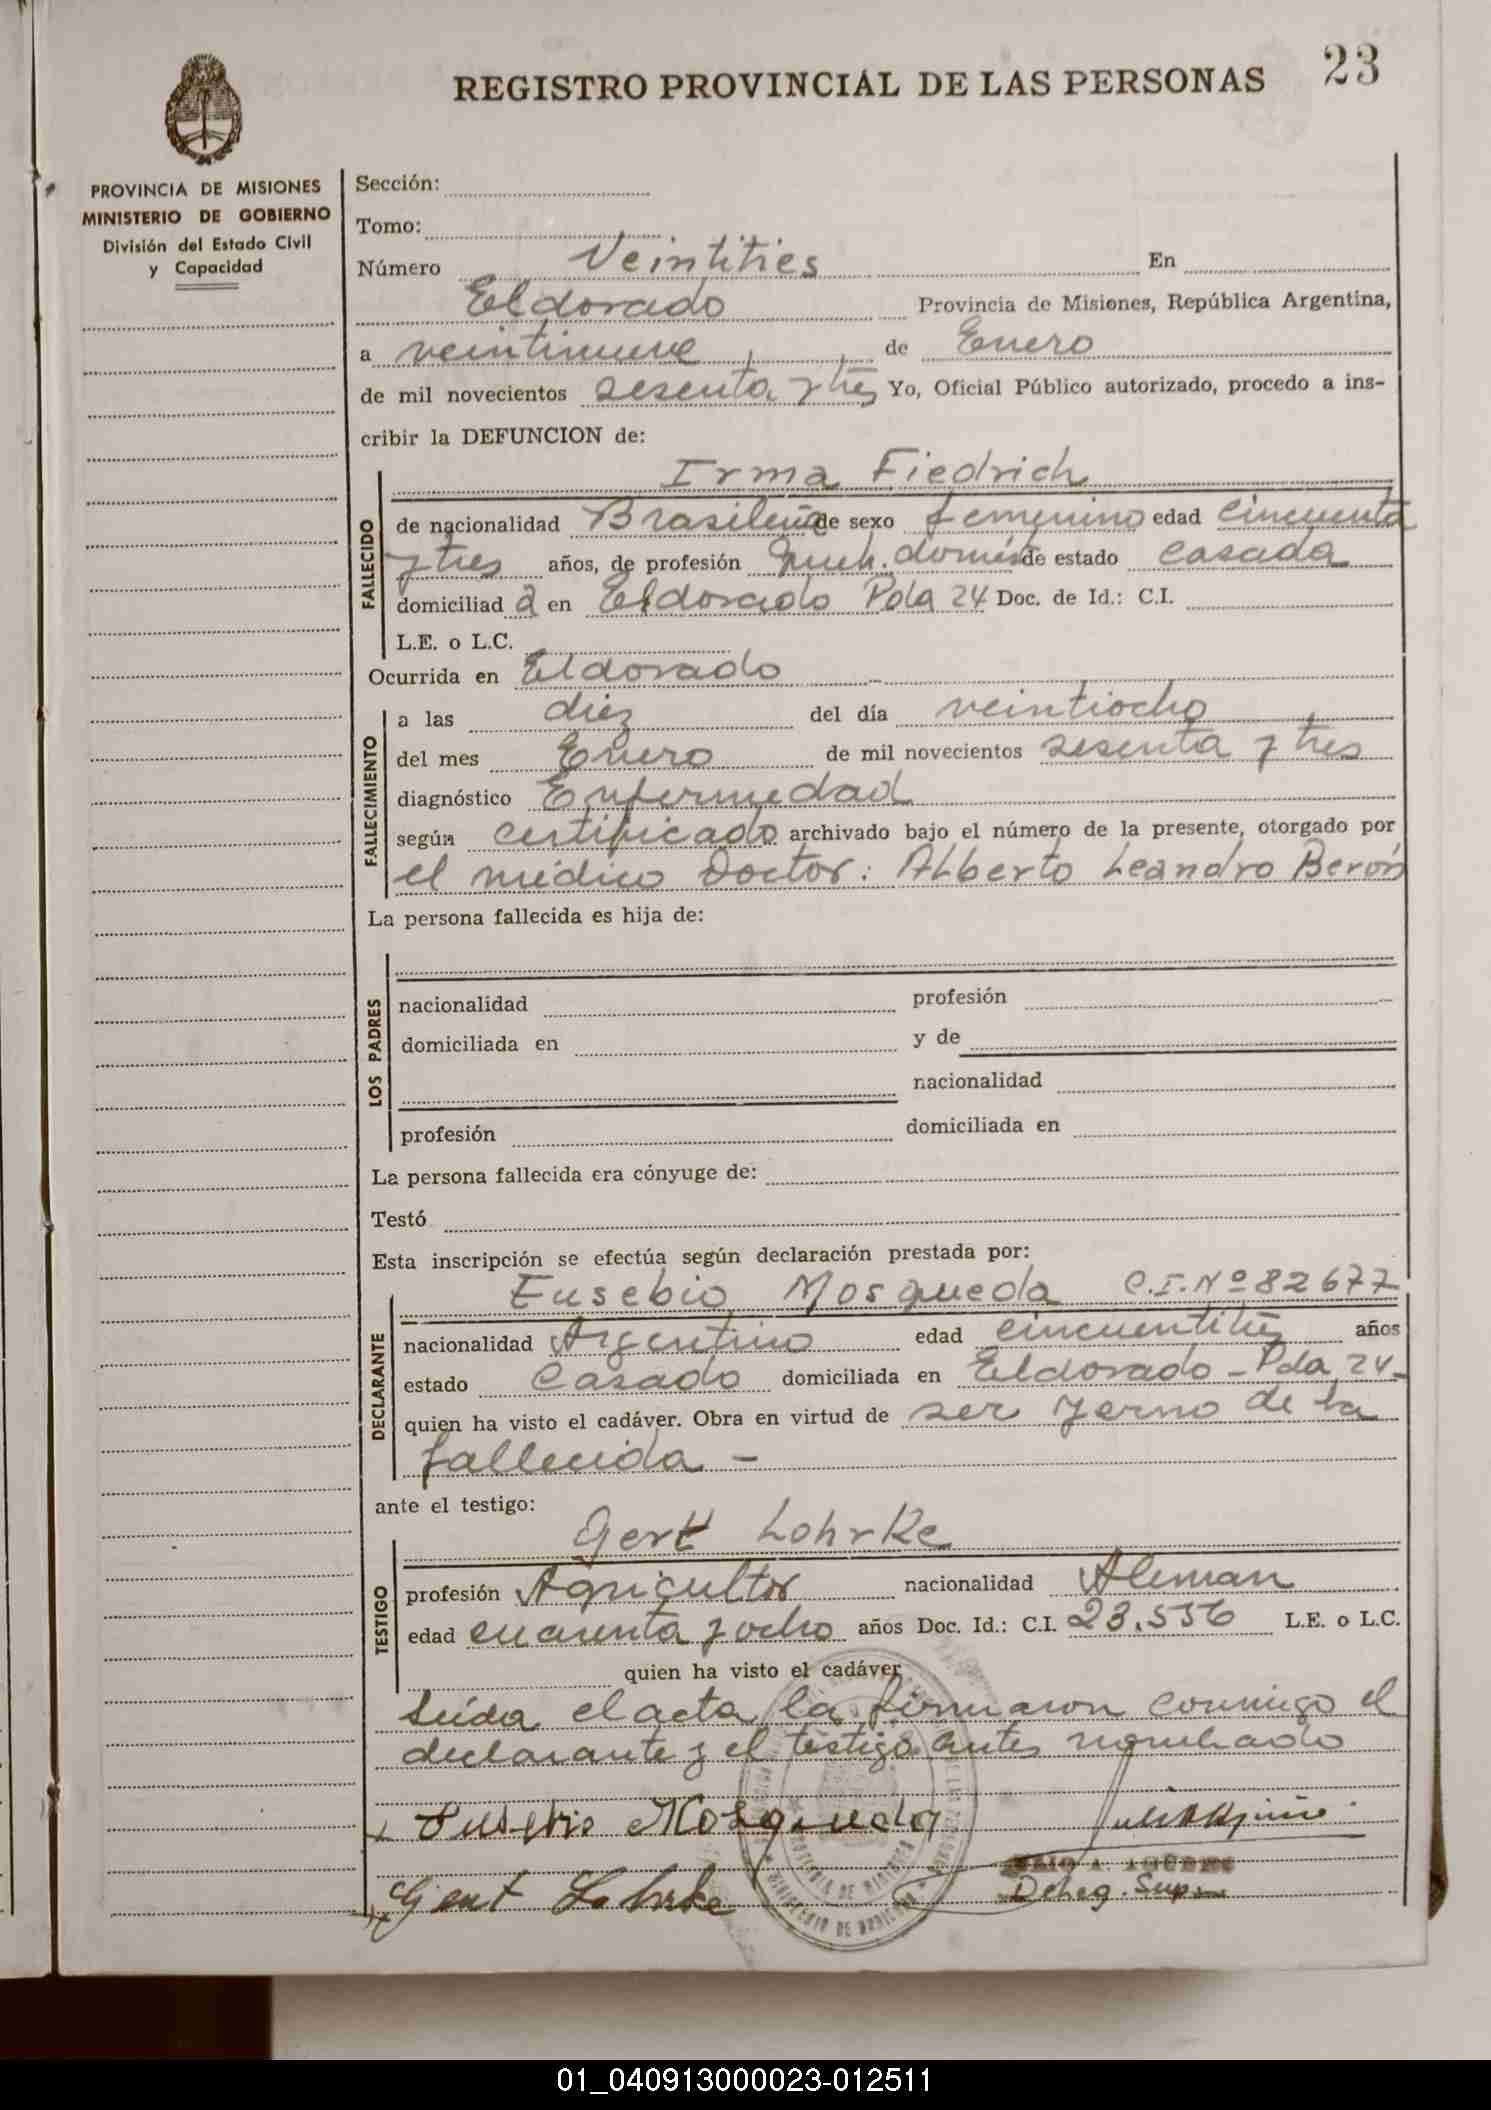 REGISTRO PROVINCIAL DE LAS PERSONAS 23
PROVINCIA DE MISIONES
MINISTERIO DE GOBIERNO
División del Estado Civil
y Capacidad
Sección:
Tomo:
Número Veintitres En
Eldorado Provincia de Misiones, República Argentina,
a veintinueve de Enero
de mil novecientos sesenta y tres Yo, Oficial Público autorizado, procedo a ins-
cribir la DEFUNCION de:
Irma Fiedrich
FALLECIDO
de nacionalidad Brasileña de sexo femenino edad cincuenta
y tres años, de profesión Queh. domés de estado casada
domiciliad a en Eldorado Pda 24 Doc. de Id.: C.I.
L.E. o L.C.
Ocurrida en Eldorado
FALLECIMIENTO
a las diez del día veintiocho
del mes Enero de mil novecientos sesenta y tres
diagnóstico Enfermedad
según certificado archivado bajo el número de la presente, otorgado por
el médico Doctor: Alberto Leandro Berón
La persona fallecida es hija de:
LOS PADRES
nacionalidad profesión
domiciliada en y de
nacionalidad
profesión domiciliada en
La persona fallecida era cónyuge de:
Testó
Esta inscripción se efectúa según declaración prestada por:
Eusebio Mosqueda C.I.Nº 82677
DECLARANTE
nacionalidad Argentino edad cincuentitrés años
estado Casado domiciliada en Eldorado - Pda 24-
quien ha visto el cadáver. Obra en virtud de ser yerno de la
fallecida -
ante el testigo:
Gert Lohrke
TESTIGO
profesión Agricultor nacionalidad Aleman
edad cuarenta y ocho años Doc. Id.: C.I. 23.556 L.E. o L.C.
quien ha visto el cadáver
Leída el acta la firmaron conmigo el
declarante y el testigo antes nombrado
Eusebio Mosqueda
Deleg. Sup.
Gert Lohrke
01_040913000023-012511